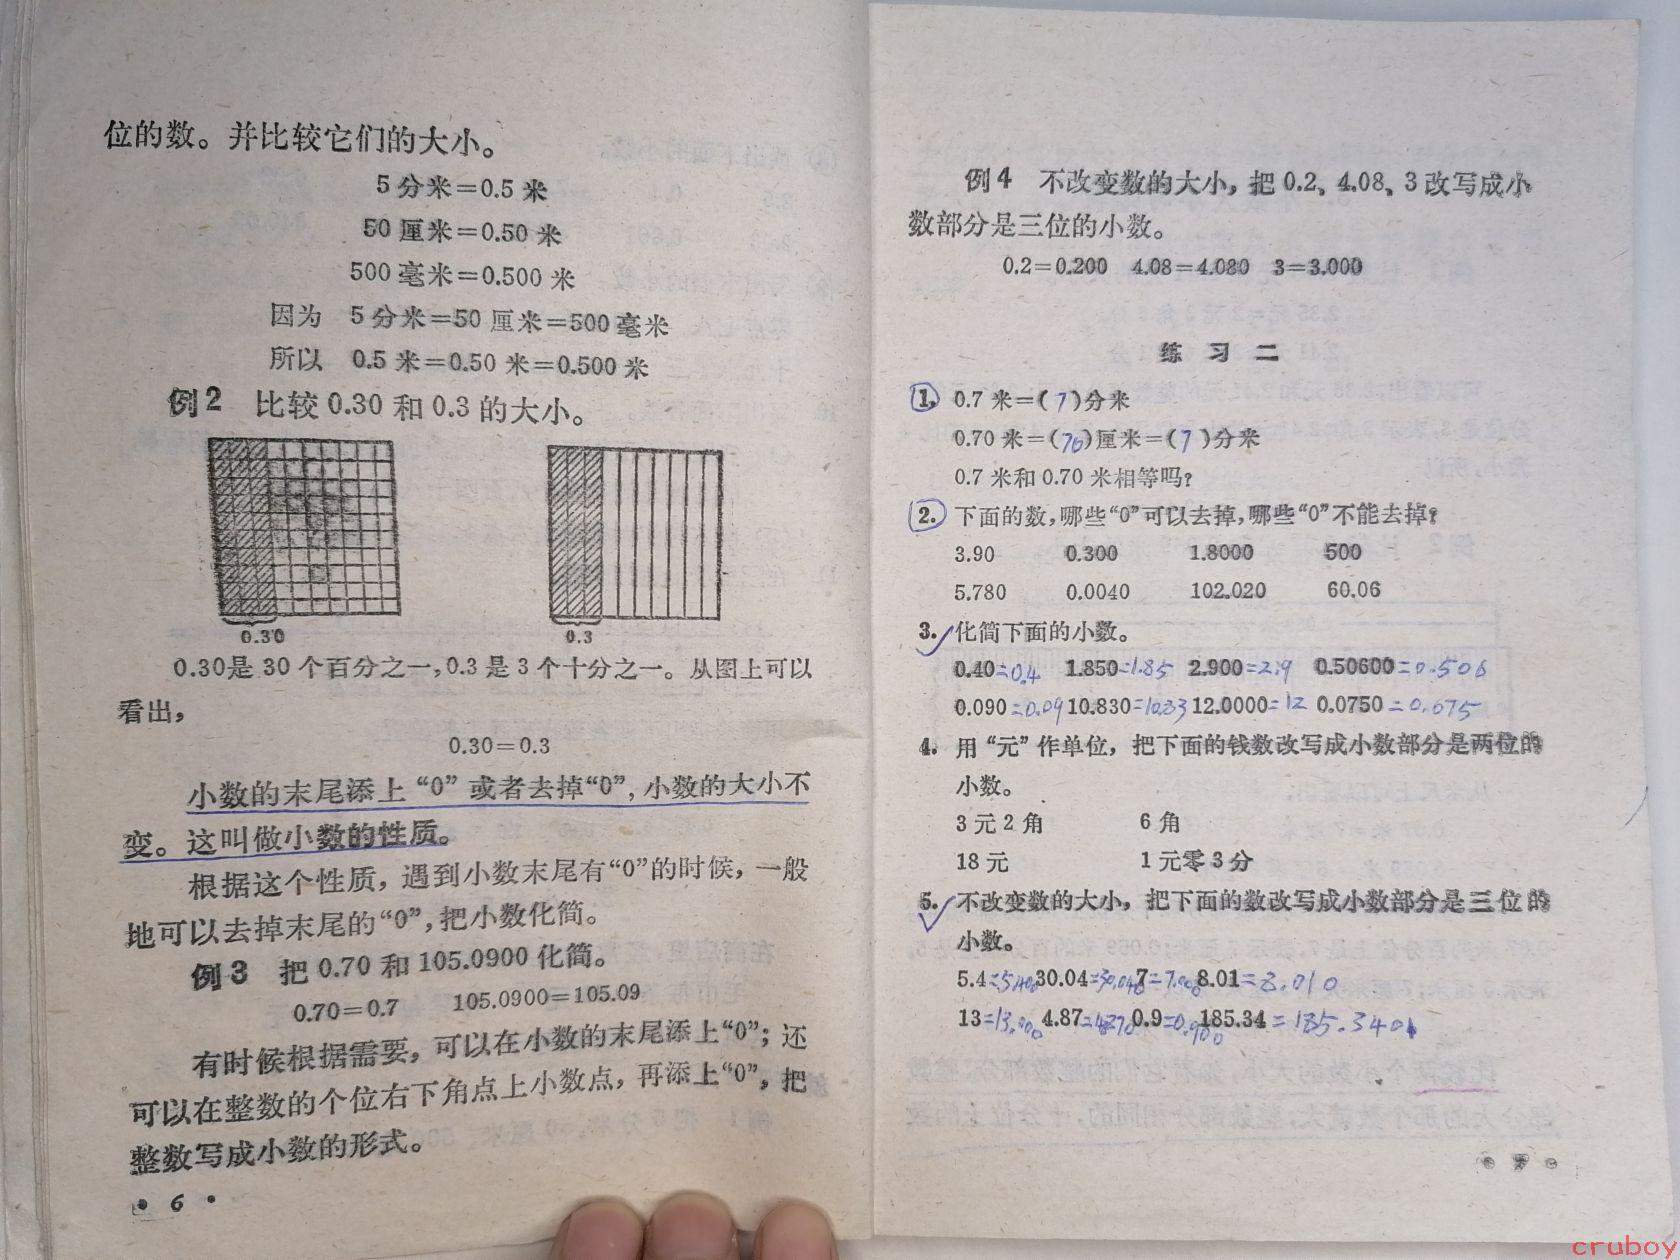 位的数。并比较它们的大小。
5分米=0.5米
50厘米=0.50米
500毫米=0.500米
因为 5分米=50厘米=500毫米
所以 0.5米=0.50米=0.500米
例2 比较0.30和0.3的大小。
0.30 0.3
0.30是30个百分之一,0.3是3个十分之一。从图上可以
看出,
0.30=0.3
小数的末尾添上“0”或者去掉“0”,小数的大小不
变。这叫做小数的性质。
根据这个性质,遇到小数末尾有“0”的时候,一般
地可以去掉末尾的“0”,把小数化简。
例3 把0.70和105.0900化简。
0.70=0.7 105.0900=105.09
有时候根据需要,可以在小数的末尾添上“0”;还
可以在整数的个位右下角点上小数点,再添上“0”,把
整数写成小数的形式。
• 6 •
例4 不改变数的大小,把0.2、4.08、3改写成小
数部分是三位的小数。
0.2=0.200 4.08=4.080 3=3.000
练习二
1. 0.7米=(7)分米
0.70米=(70)厘米=(7)分米
0.7米和0.70米相等吗?
2. 下面的数,哪些“0”可以去掉,哪些“0”不能去掉?
3.90 0.300 1.8000 500
5.780 0.0040 102.020 60.06
3. 化简下面的小数。
0.40=0.4 1.850=1.85 2.900=2.9 0.50600=0.506
0.090=0.09 10.830=10.83 12.0000=12 0.0750=0.075
4. 用“元”作单位,把下面的钱数改写成小数部分是两位的
小数。
3元2角 6角
18元 1元零3分
5. 不改变数的大小,把下面的数改写成小数部分是三位的
小数。
5.4=5.400 30.04=30.040 7=7.000 8.01=8.010
13=13.000 4.87=4.870 0.9=0.900 185.34=185.340
• 7 •
cruboy